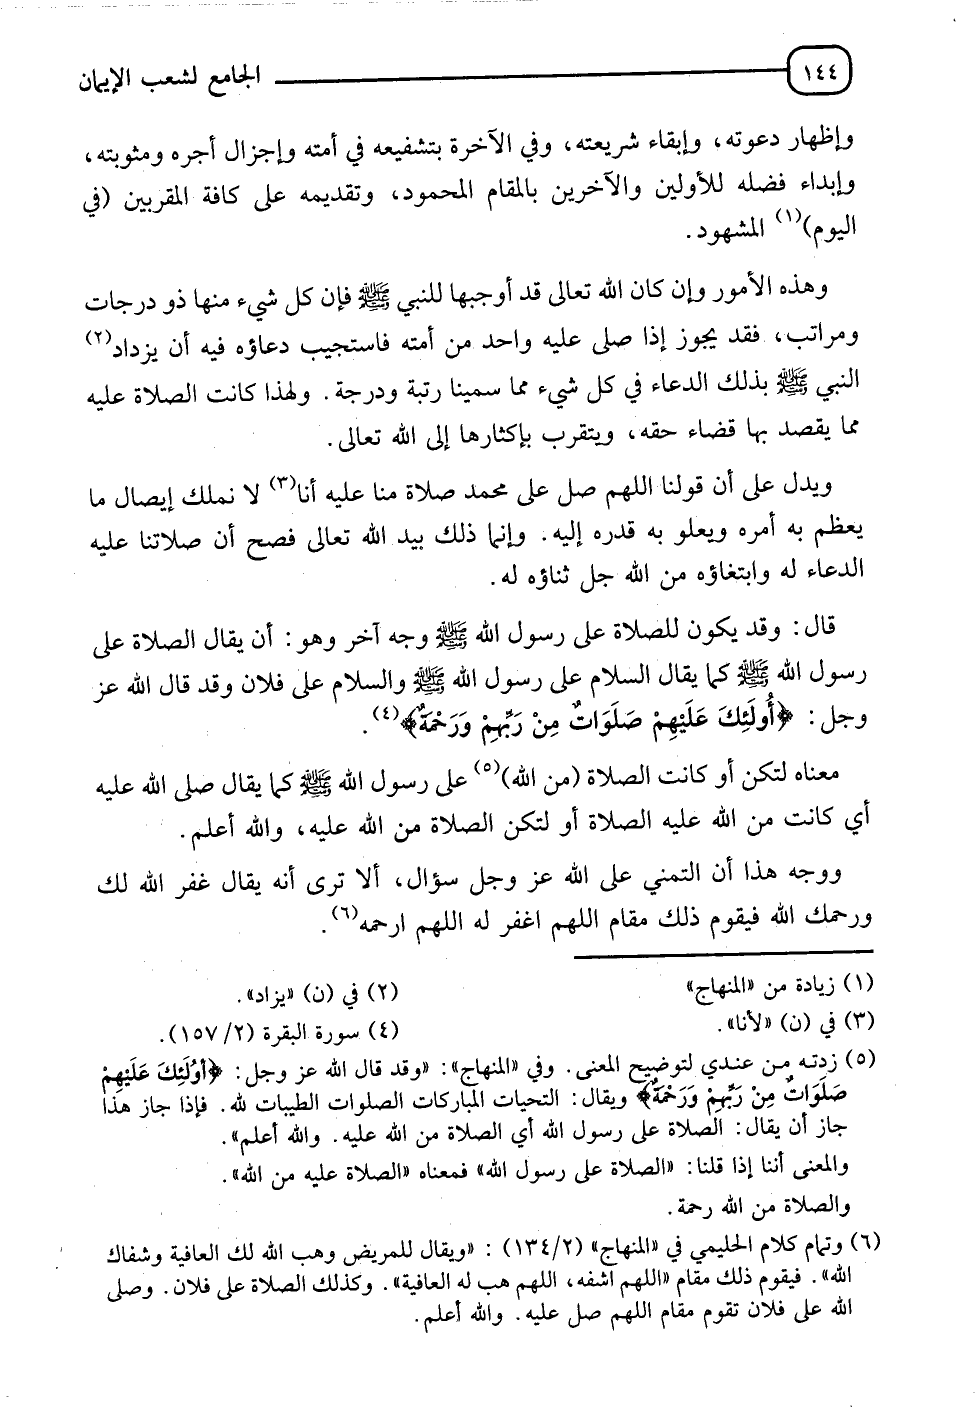 ١٤٤ الجامع لشعب الإيمان
وإظهار دعوته، وإبقاء شريعته، وفي الآخرة بتشفيعه في أمته وإجزال أجره ومثوبته،
وإبداء فضله للأولين والآخرين بالمقام المحمود، وتقديمه على كافة المقربين (في
اليوم)(١) المشهود.
وهذه الأمور وإن كان الله تعالى قد أوجبها للنبي ﷺ فإن كل شيء منها ذو درجات
ومراتب، فقد يجوز إذا صلى عليه واحد من أمته فاستجيب دعاؤه فيه أن يزداد(٢)
النبي ﷺ بذلك الدعاء في كل شيء مما سمينا رتبة ودرجة. ولهذا كانت الصلاة عليه
مما يقصد بها قضاء حقه، ويتقرب بإكثارها إلى الله تعالى.
ويدل على أن قولنا اللهم صل على محمد صلاة منا عليه أنا(٣) لا نملك إيصال ما
يعظم به أمره ويعلو به قدره إليه. وإنما ذلك بيد الله تعالى فصح أن صلاتنا عليه
الدعاء له وابتغاؤه من الله جل ثناؤه له.
قال: وقد يكون للصلاة على رسول الله ﷺ وجه آخر وهو: أن يقال الصلاة على
رسول الله ﷺ كما يقال السلام على رسول الله ﷺ والسلام على فلان وقد قال الله عز
وجل: ﴿أُولَئِكَ عَلَيْهِمْ صَلَوَاتٌ مِنْ رَبِّهِمْ وَرَحْمَةٌ﴾(٤).
معناه لتكن أو كانت الصلاة (من الله)(٥) على رسول الله ﷺ كما يقال صلى الله عليه
أي كانت من الله عليه الصلاة أو لتكن الصلاة من الله عليه، والله أعلم.
ووجه هذا أن التمني على الله عز وجل سؤال، ألا ترى أنه يقال غفر الله لك
ورحمك الله فيقوم ذلك مقام اللهم اغفر له اللهم ارحمه(٦).
(١) زيادة من «المنهاج» (٢) في (ن) «يزاد».
(٣) في (ن) «لأنا». (٤) سورة البقرة (٢/ ١٥٧).
(٥) زدته من عندي لتوضيح المعنى. وفي «المنهاج»: «وقد قال الله عز وجل: ﴿أُولَئِكَ عَلَيْهِمْ
صَلَوَاتٌ مِنْ رَبِّهِمْ وَرَحْمَةٌ﴾ ويقال: التحيات المباركات الصلوات الطيبات لله. فإذا جاز هذا
جاز أن يقال: الصلاة على رسول الله أي الصلاة من الله عليه. والله أعلم».
والمعنى أننا إذا قلنا: «الصلاة على رسول الله» فمعناه «الصلاة عليه من الله».
والصلاة من الله رحمة.
(٦) وتمام كلام الحليمي في «المنهاج» (٢/ ١٣٤): «ويقال للمريض وهب الله لك العافية وشفاك
الله». فيقوم ذلك مقام «اللهم اشفه، اللهم هب له العافية». وكذلك الصلاة على فلان. وصلى
الله على فلان تقوم مقام اللهم صل عليه. والله أعلم.